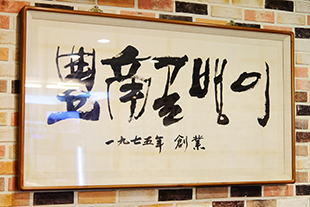 豊南골뱅이
一九七五年 創業